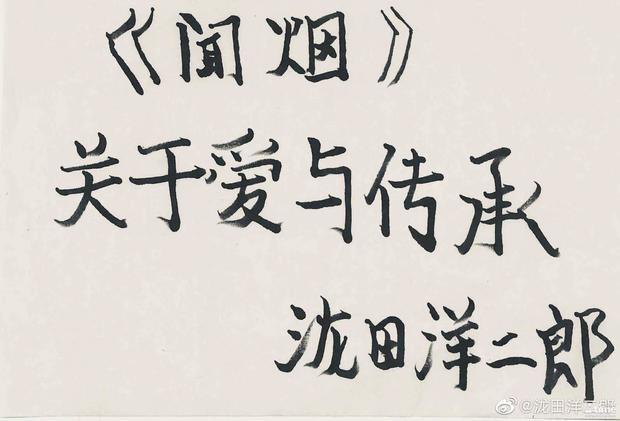 《闻烟》
关于爱与传承
泷田洋二郎
@泷田洋二郎